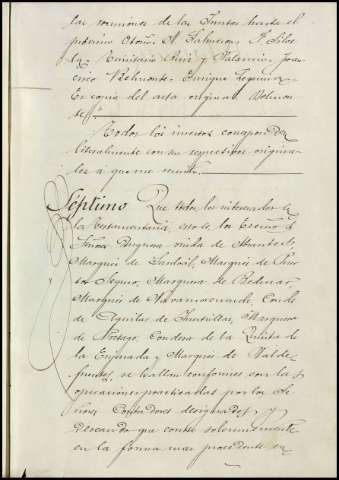 las reuniones de las Juntas hasta el
próximo Otoño. A. Salmeron. F. Silve
la. Santiario Ruiz y Palancia, Joa
Belmonte. Enrique
Es copia del acta original. Belmon
te"
Todos los insertos corresponden
literalmente con sus respectivos origina
les a que me remito.
Séptimo Que todos los interesados en
la testamentaria, esto es, los Excmos
Señora Duquesa viuda de
Marqués de Sardoal, Marqués de Puer
to Seguro, Marquesa de Bedmar,
Marqués de Navamorcuende, Conde
de Aguilar de Inestrillas, Marquesa
de Condesa de la Quinta de
la Enjarada y Marqués de Valde
fuentes, se hallan conformes con las
operaciones practicadas por los Se
ñores Contadores designados, y
Deseando que conste solemnemente
en la forma mas procedente en